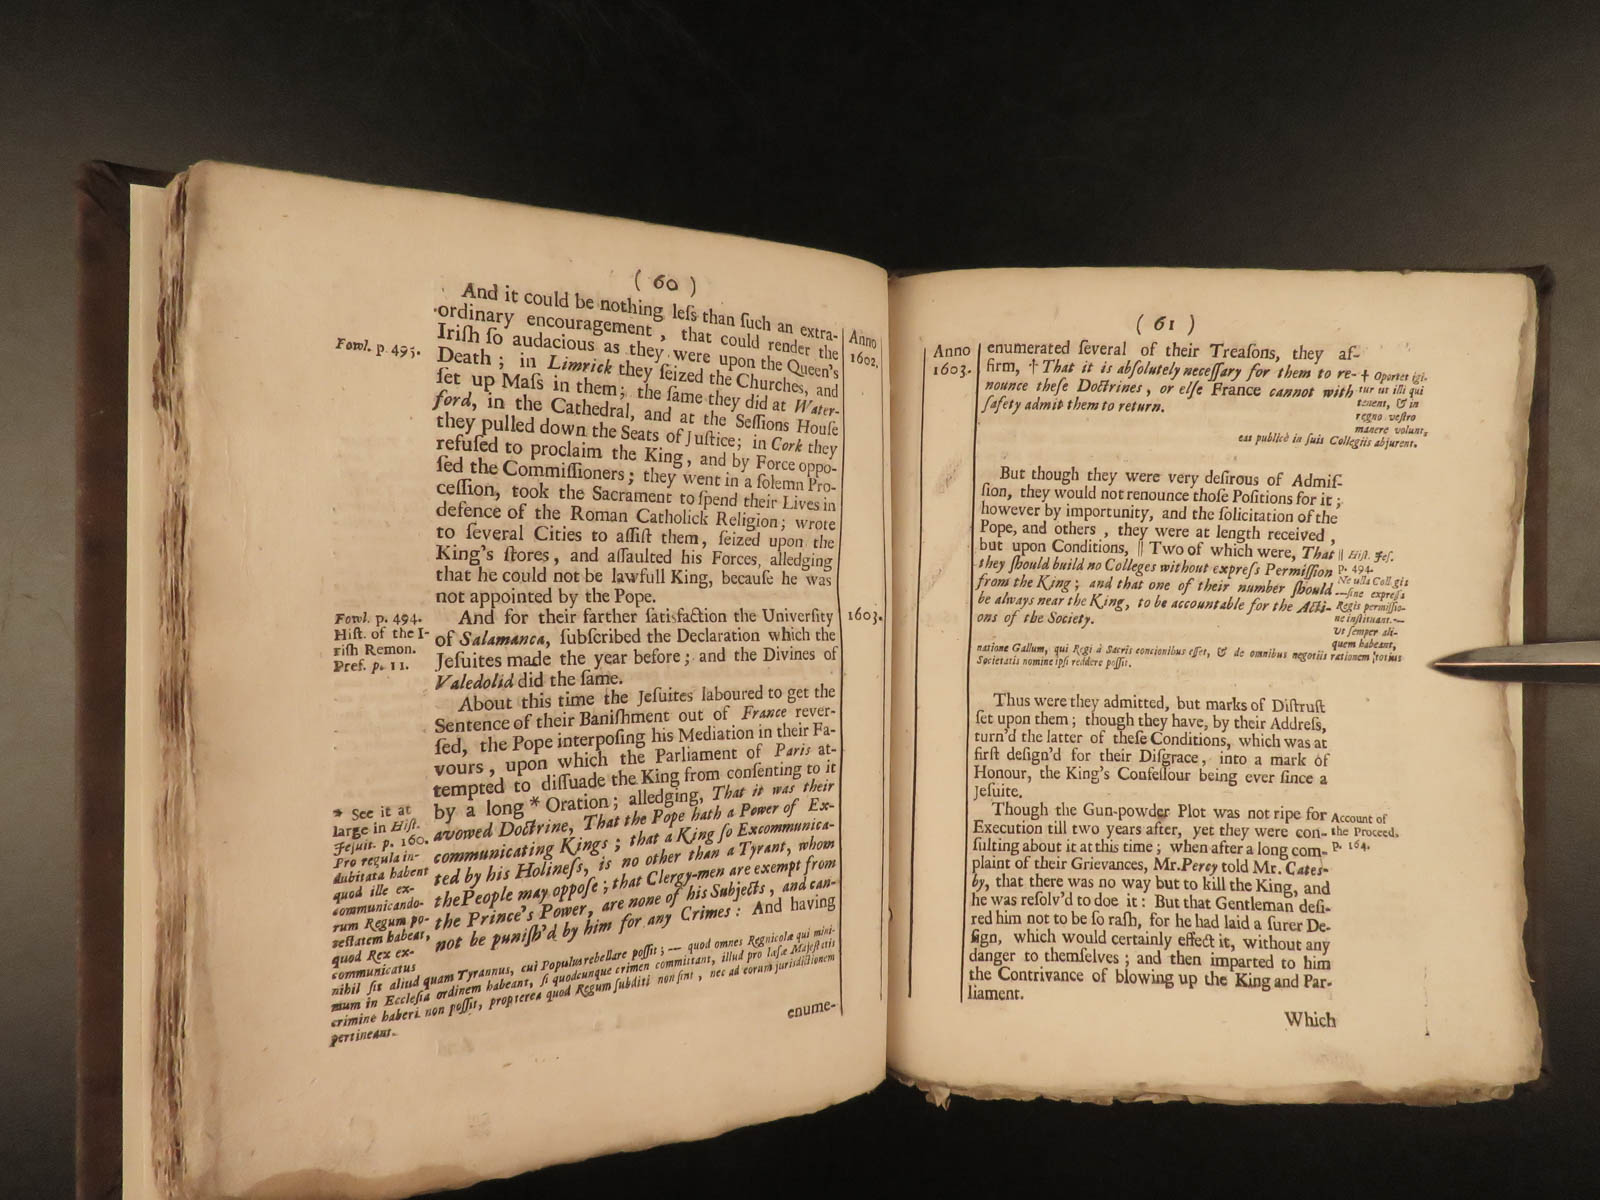 ( 60 )
And it could be nothing leſs than ſuch an extra-
ordinary encouragement , that could render the
Iriſh ſo audacious as they were upon the Queen's
Death ; in Limrick they ſeized the Churches, and
ſet up Maſs in them; the ſame they did at Water-
ford, in the Cathedral, and at the Seſſions Houſe
they pulled down the Seats of Juſtice; in Cork they
refuſed to proclaim the King, and by Force oppo-
ſed the Commiſſioners ; they went in a ſolemn Pro-
ceſſion, took the Sacrament to ſpend their Lives in
defence of the Roman Catholick Religion; wrote
to ſeveral Cities to aſſiſt them, ſeized upon the
King's ſtores, and aſſaulted his Forces, alledging
that he could not be lawfull King, becauſe he was
not appointed by the Pope.
And for their farther ſatisfaction the Univerſity
of Salamanca, ſubſcribed the Declaration which the
Jeſuites made the year before; and the Divines of
Valedolid did the ſame.
About this time the Jeſuites laboured to get the
Sentence of their Baniſhment out of France rever-
ſed, the Pope interpoſing his Mediation in their Fa-
vours , upon which the Parliament of Paris at-
tempted to diſſuade the King from conſenting to it
by a long * Oration; alledging, That it was their
avowed Doctrine, That the Pope hath a Power of Ex-
communicating Kings ; that a King ſo Excommunica-
ted by his Holineſs, is no other than a Tyrant, whom
the People may oppoſe ; that Clergy-men are exempt from
the Prince's Power, are none of his Subjects, and can-
not be puniſh'd by him for any Crimes : And having
Fowl. p. 495.
Anno
1602.
Fowl. p. 494.
Hiſt. of the I-
riſh Remon.
Pref. p. 11.
1603.
* See it at
large in Hiſt.
Jeſuit. p. 160.
Pro regula in-
dubitata habent
quod ille ex-
communicando-
rum Regum po-
teſtatem habeat,
quod Rex ex-
communicatus
nihil ſit aliud quam Tyrannus, cui Populus rebellare poſſit ; — quod omnes Regnicolæ qui mini-
mum in Eccleſia ordinem habeant, ſi quodcunque crimen committant, illud pro læſæ Majeſtatis
crimine haberi non poſſit, propterea quod Regum ſubditi non ſint , nec ad eorum jurisdictionem
pertineant.
enume-
( 61 )
Anno
1603.
enumerated ſeveral of their Treaſons, they af-
firm, † That it is abſolutely neceſſary for them to re-
nounce theſe Doctrines, or elſe France cannot with
ſafety admit them to return.
† Oportet igi-
tur ut illi qui
tenent, & in
regno veſtro
manere volunt,
eas publicè in ſuis Collegiis abjurent.
But though they were very deſirous of Admiſ-
ſion, they would not renounce thoſe Poſitions for it ;
however by importunity, and the ſolicitation of the
Pope, and others , they were at length received ,
but upon Conditions, || Two of which were, That
they ſhould build no Colleges without expreſs Permiſſion
from the King ; and that one of their number ſhould
be always near the King, to be accountable for the Acti-
ons of the Society.
|| Hiſt. Jeſ.
p. 494.
Ne ulla Collegia
—ſine expreſſa
Regis permiſſio-
ne inſtituant.—
Ut ſemper ali-
quem habeant,
natione Gallum, qui Regi à Sacris concionibus eſſet, & de omnibus negotiis rationem totius
Societatis nomine ipſi reddere poſſit.
Thus were they admitted, but marks of Diſtruſt
ſet upon them ; though they have, by their Addreſs,
turn'd the latter of theſe Conditions, which was at
firſt deſign'd for their Diſgrace, into a mark of
Honour, the King's Confeſſour being ever ſince a
Jeſuite.
Though the Gun-powder Plot was not ripe for
Execution till two years after, yet they were con-
ſulting about it at this time ; when after a long com-
plaint of their Grievances, Mr. Percy told Mr. Cates-
by, that there was no way but to kill the King, and
he was reſolv'd to doe it : But that Gentleman deſi-
red him not to be ſo raſh, for he had laid a ſurer De-
ſign, which would certainly effect it, without any
danger to themſelves ; and then imparted to him
the Contrivance of blowing up the King and Par-
liament.
Account of
the Proceed.
p. 164.
Which